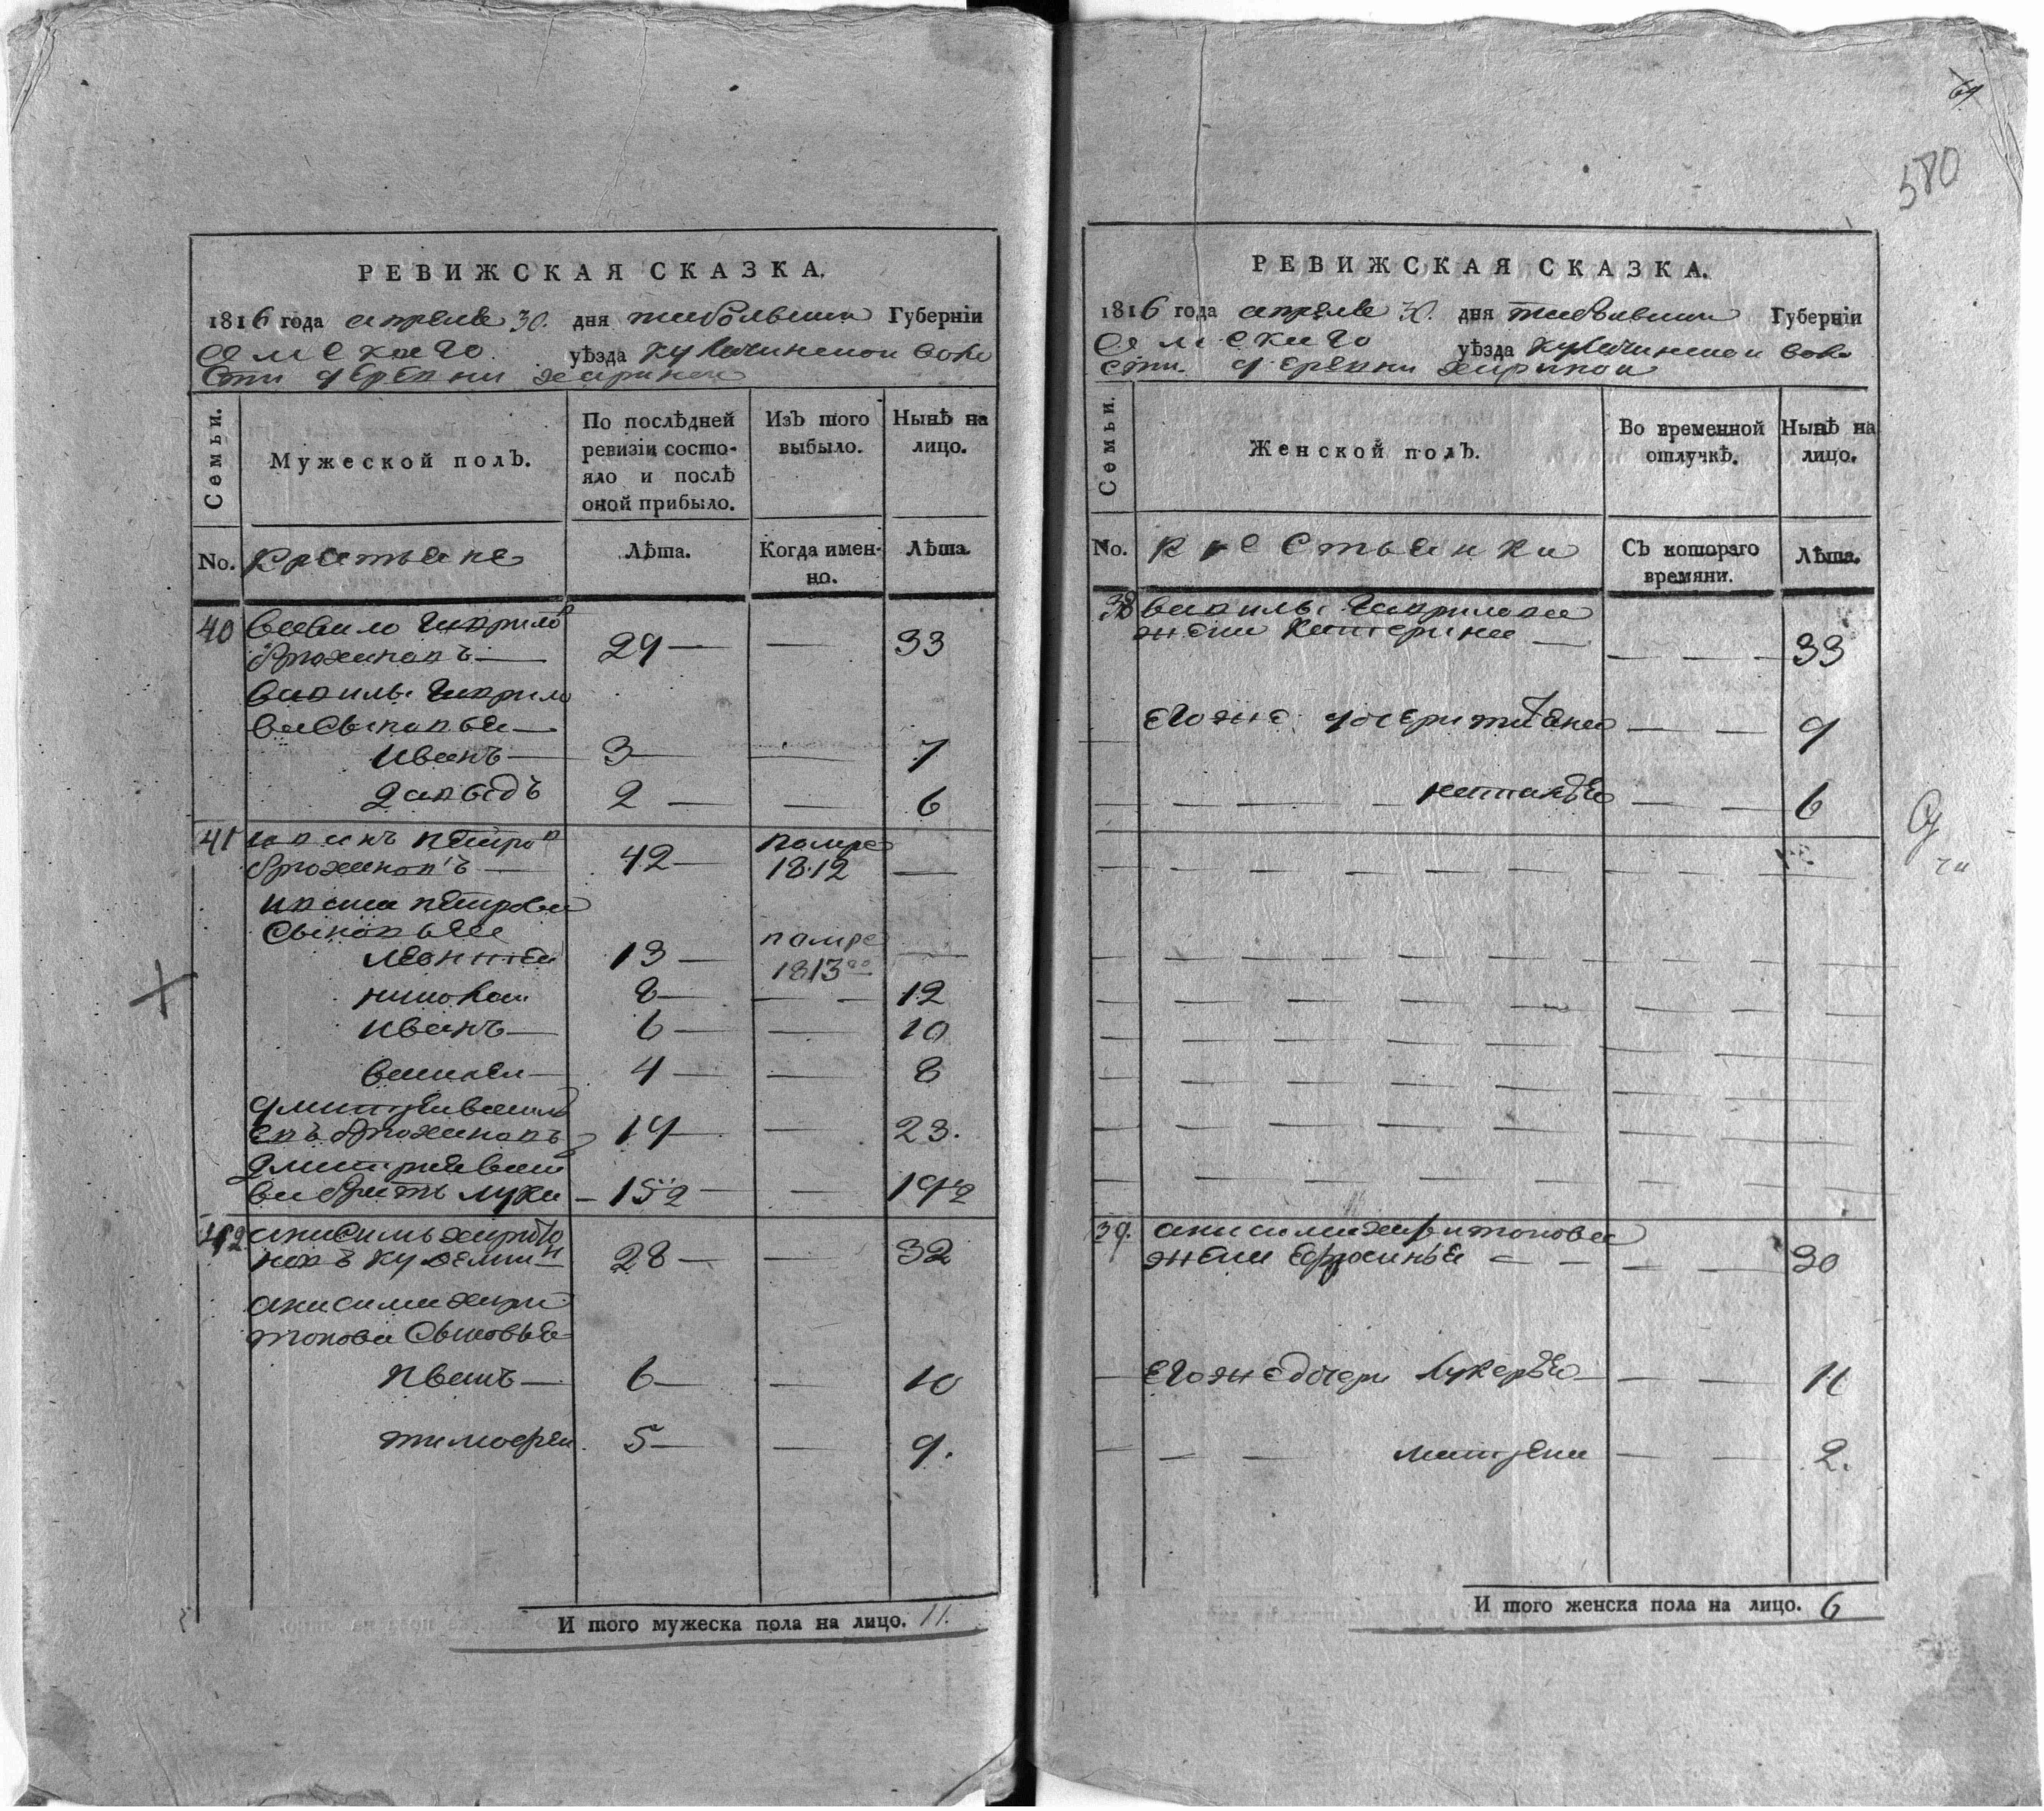 РЕВИЖСКАЯ СКАЗКА.
1816 года апреля 30. дня тобольской Губерніи
омскаго уѣзда кулачинской воло
сти деревни хариной
Семьи.
Мужеской полъ.
По послѣдней
ревизіи состо-
яло и послѣ
оной прибыло.
Изъ того
выбыло.
Нынѣ на
лицо.
No.
крестьяне
Лѣта.
Когда имен-
но.
Лѣта.
40 Гаврило
29 — — 33
Гаврило
ва сыновья —
иванъ — 3 — — 7
давыдъ 2 — — 6
41 петров
42 — помре
1812 —
петрова
сыновья
13 — помре
1813 —
николай 8 — — 12
иванъ — 6 — — 10
4 — — 8
дмитрей василь
евъ 19 — — 23.
дмитрея васи
ва братъ лука — 15 — — 19
42 анисимъ харито
новъ 28 — — 32
анисима хари
тонова сыновья
иванъ — 6 — — 10
тимофей. 5 — — 9.
И того мужеска пола на лицо. 11.
580
РЕВИЖСКАЯ СКАЗКА.
1816 года апреля 30. дня тобольской Губерніи
омскаго уѣзда кулачинской воло
сти. деревни хариной
Семьи.
Женской полъ.
Во временной
отлучкѣ.
Нынѣ на
лицо.
No.
крестьянки
Съ котораго
времяни.
Лѣта.
38 Гаврилова
жена катерина — — — — 33
его же дочери татьяна — — 9
наталья — — 6
39. анисима харитонова
жена ефросинья — — — — 30
его же дочери лукерья — — 11
матрена — — 2.
И того женска пола на лицо. 6